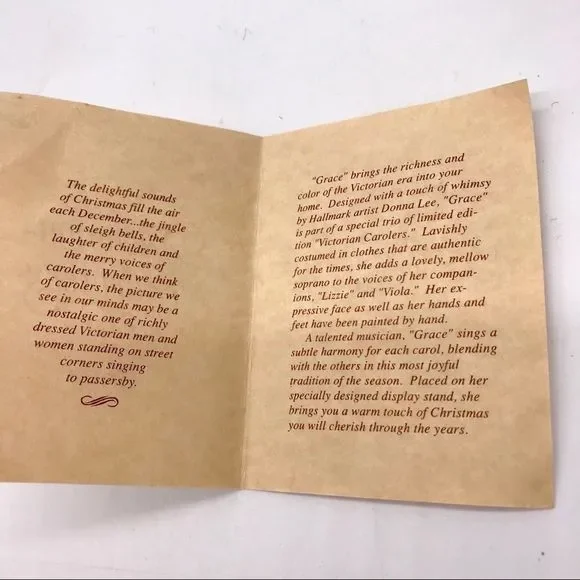 The delightful sounds
of Christmas fill the air
each December...the jingle
of sleigh bells, the
laughter of children and
the merry voices of
carolers. When we think
of carolers, the picture we
see in our minds may be a
nostalgic one of richly
dressed Victorian men and
women standing on street
corners singing
to passersby.
"Grace" brings the richness and
color of the Victorian era into your
home. Designed with a touch of whimsy
by Hallmark artist Donna Lee, "Grace"
is part of a special trio of limited edi-
tion "Victorian Carolers." Lavishly
costumed in clothes that are authentic
for the times, she adds a lovely, mellow
soprano to the voices of her compan-
ions, "Lizzie" and "Viola." Her ex-
pressive face as well as her hands and
feet have been painted by hand.
A talented musician, "Grace" sings a
subtle harmony for each carol, blending
with the others in this most joyful
tradition of the season. Placed on her
specially designed display stand, she
brings you a warm touch of Christmas
you will cherish through the years.